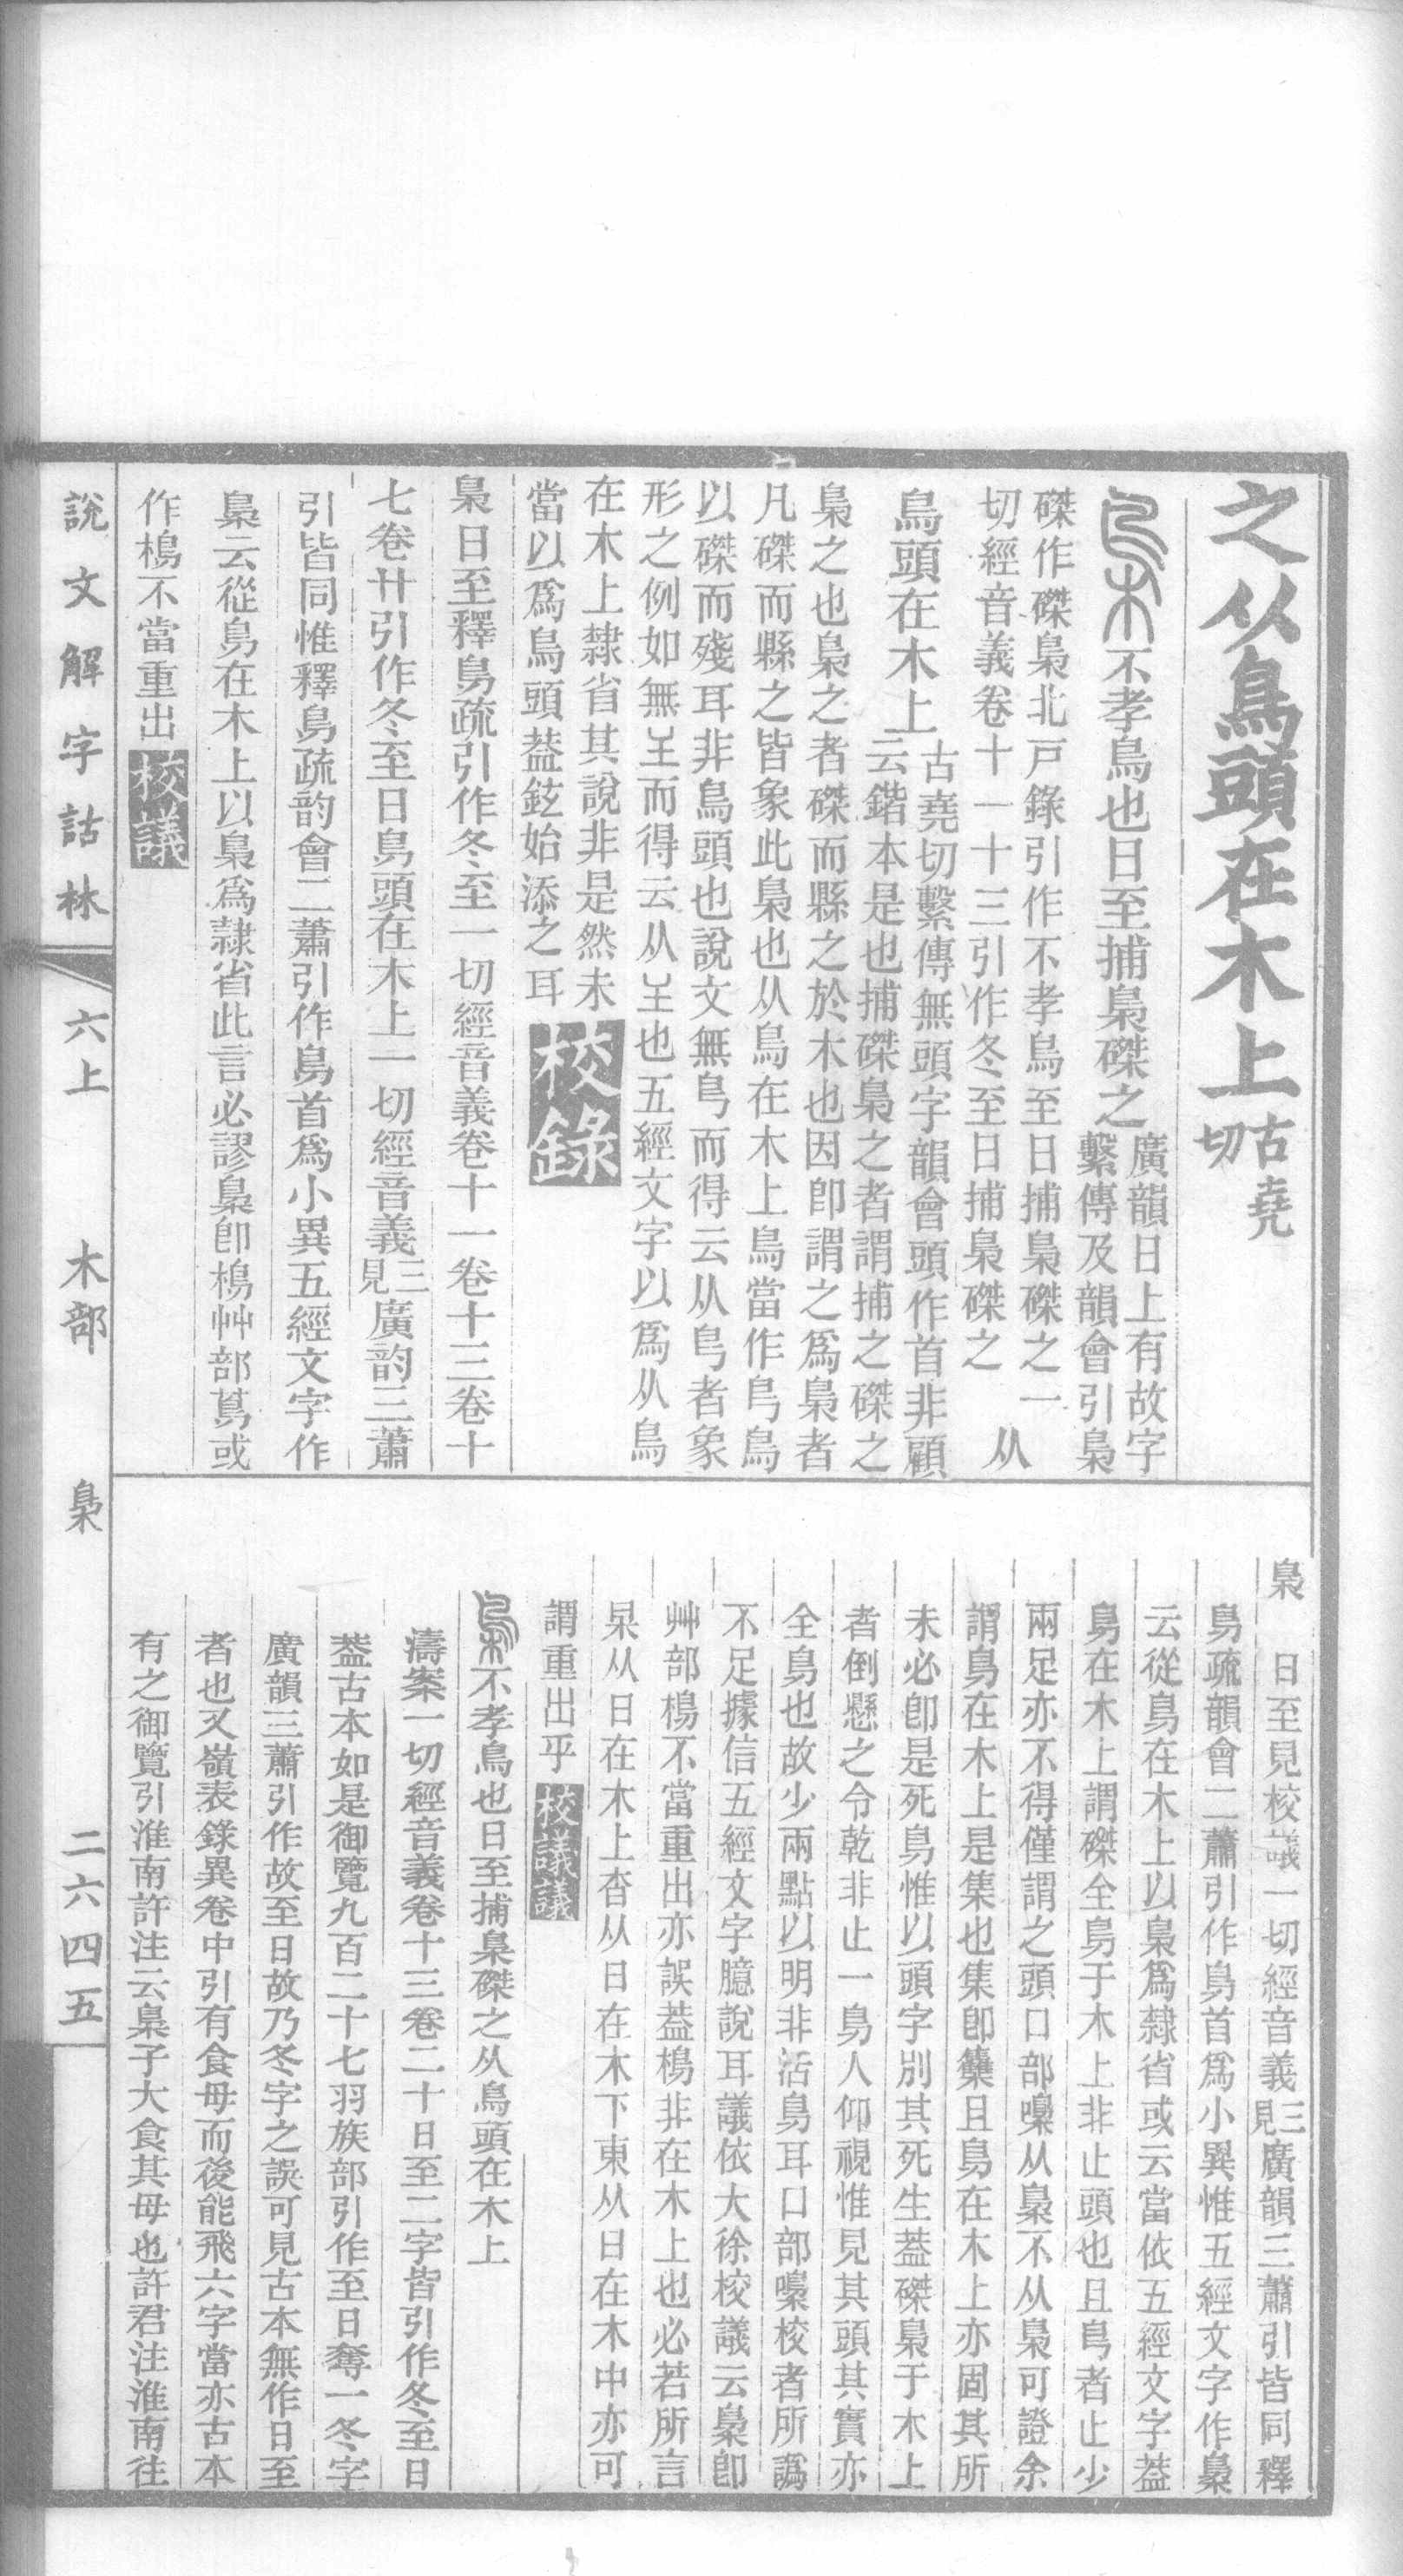 之从鳥頭在木上古堯切
不孝鳥也日至捕梟磔之廣韻日上有故字繫傳及韻會引梟
磔作磔梟北戸錄引作不孝鳥至日捕梟磔之一
切經音義卷十一十三引作冬至日捕梟磔之
从
鳥頭在木上古堯切繫傳無頭字韻會頭作首非顧
云鍇本是也捕磔梟之者謂捕之磔之
梟之也梟之者磔而縣之於木也因卽謂之爲梟者
凡磔而縣之皆象此梟也从鳥在木上鳥當作𠃬鳥
以磔而殘耳非鳥頭也說文無𠃬而得云从𠃬者象
形之例如無𦣠而得云从𦣠也五經文字以爲从鳥
在木上隸省其說非是然未
當以爲鳥頭葢鉉始添之耳
校錄
梟日至釋鳥疏引作冬至一切經音義卷十一卷十三卷十
七卷廿引作冬至日鳥頭在木上一切經音義三見廣韵三蕭
引皆同惟釋鳥疏韵會二蕭引作鳥首爲小異五經文字作
梟云從鳥在木上以梟爲隸省此言必謬梟卽樢艸部蔦或
作樢不當重出
校議
梟　日至見校議一切經音義三見廣韻三蕭引皆同釋
鳥疏韻會二蕭引作鳥首爲小異惟五經文字作梟
云從鳥在木上以梟爲隸省或云當依五經文字葢
鳥在木上謂磔全鳥于木上非止頭也且𠃬者止少
兩足亦不得僅謂之頭口部嘄从梟不从梟可證余
謂鳥在木上是集也集卽雧且鳥在木上亦固其所
未必卽是死鳥惟以頭字別其死生葢磔梟于木上
者倒懸之令乾非止一鳥人仰視惟見其頭其實亦
全鳥也故少兩點以明非活鳥耳口部嘄校者所譌
不足據信五經文字臆說耳議依大徐校議云梟卽
艸部樢不當重出亦誤葢樢非在木上也必若所言
杲从日在木上杳从日在木下東从日在木中亦可
謂重出乎
校議議
不孝鳥也日至捕梟磔之从鳥頭在木上
濤案一切經音義卷十三卷二十日至二字皆引作冬至日
葢古本如是御覽九百二十七羽族部引作至日奪一冬字
廣韻三蕭引作故至日故乃冬字之誤可見古本無作日至
者也又嶺表錄異卷中引有食母而後能飛六字當亦古本
有之御覽引淮南許注云梟子大食其母也許君注淮南往
說文解字詁林
六上
木部
梟
二六四五